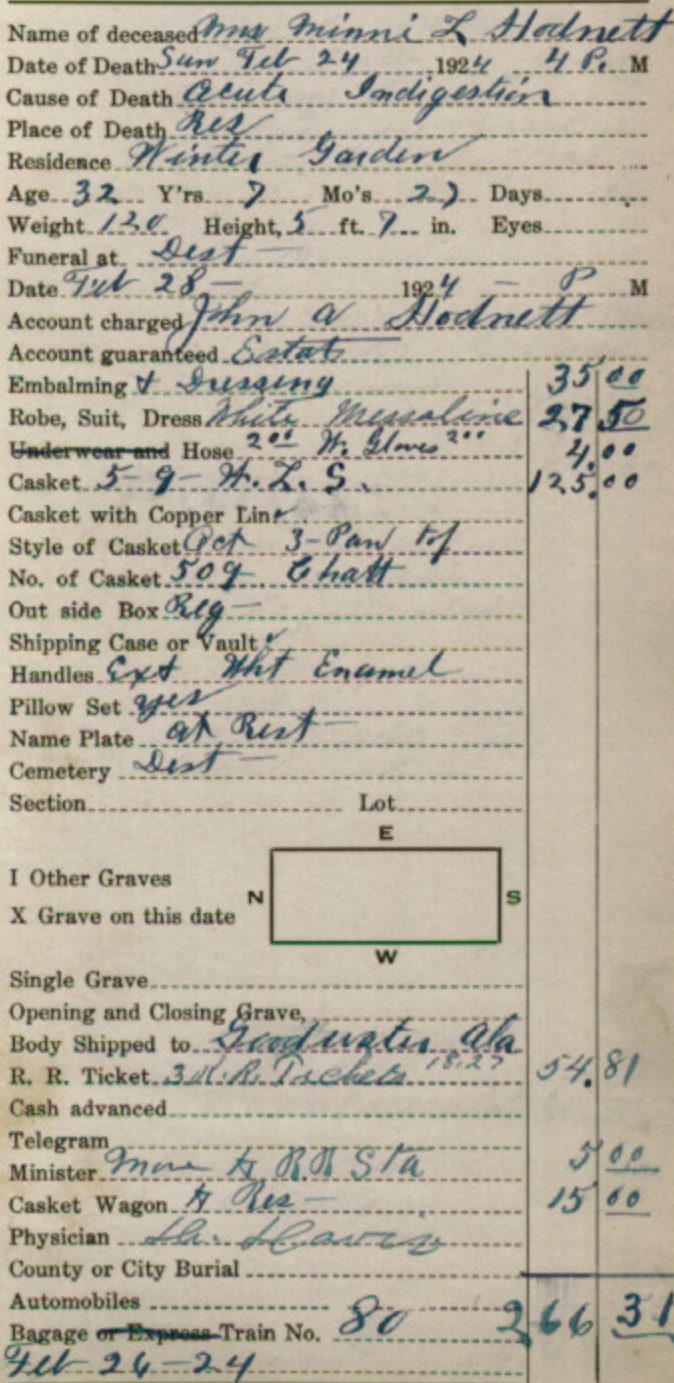 Name of deceased Mrs Minni L Hodnett
Date of Death Sun Feb 24 1924 4 P. M
Cause of Death Acute Indigestion
Place of Death Res
Residence Winter Garden
Age 32 Y'rs 7 Mo's 27 Days
Weight 120 Height, 5 ft. 7 in. Eyes
Funeral at Dest
Date Feb 28 1924 - P M
Account charged John A Hodnett
Account guaranteed Estat
Embalming & Dressing 35 00
Robe, Suit, Dress White Messaline 27 50
Underwear and Hose 2 00 W. Gloves 2 00 4.00
Casket 5-9- W. L. S. 125.00
Casket with Copper Line
Style of Casket Oct 3-Pan Top
No. of Casket 509 Chatt
Out side Box Reg
Shipping Case or Vault
Handles Ext Wht Enamel
Pillow Set yes
Name Plate At Rest
Cemetery Dest
Section Lot
E
I Other Graves
N S
X Grave on this date
W
Single Grave
Opening and Closing Grave,
Body Shipped to Goodwater Ala
R. R. Ticket 3 R.R. Tickets 18.27 54.81
Cash advanced
Telegram
Minister Move to R R Sta 5 00
Casket Wagon to Res 15 00
Physician Davis
County or City Burial
Automobiles
Bagage or Express Train No. 80 266 31
Feb 26-24